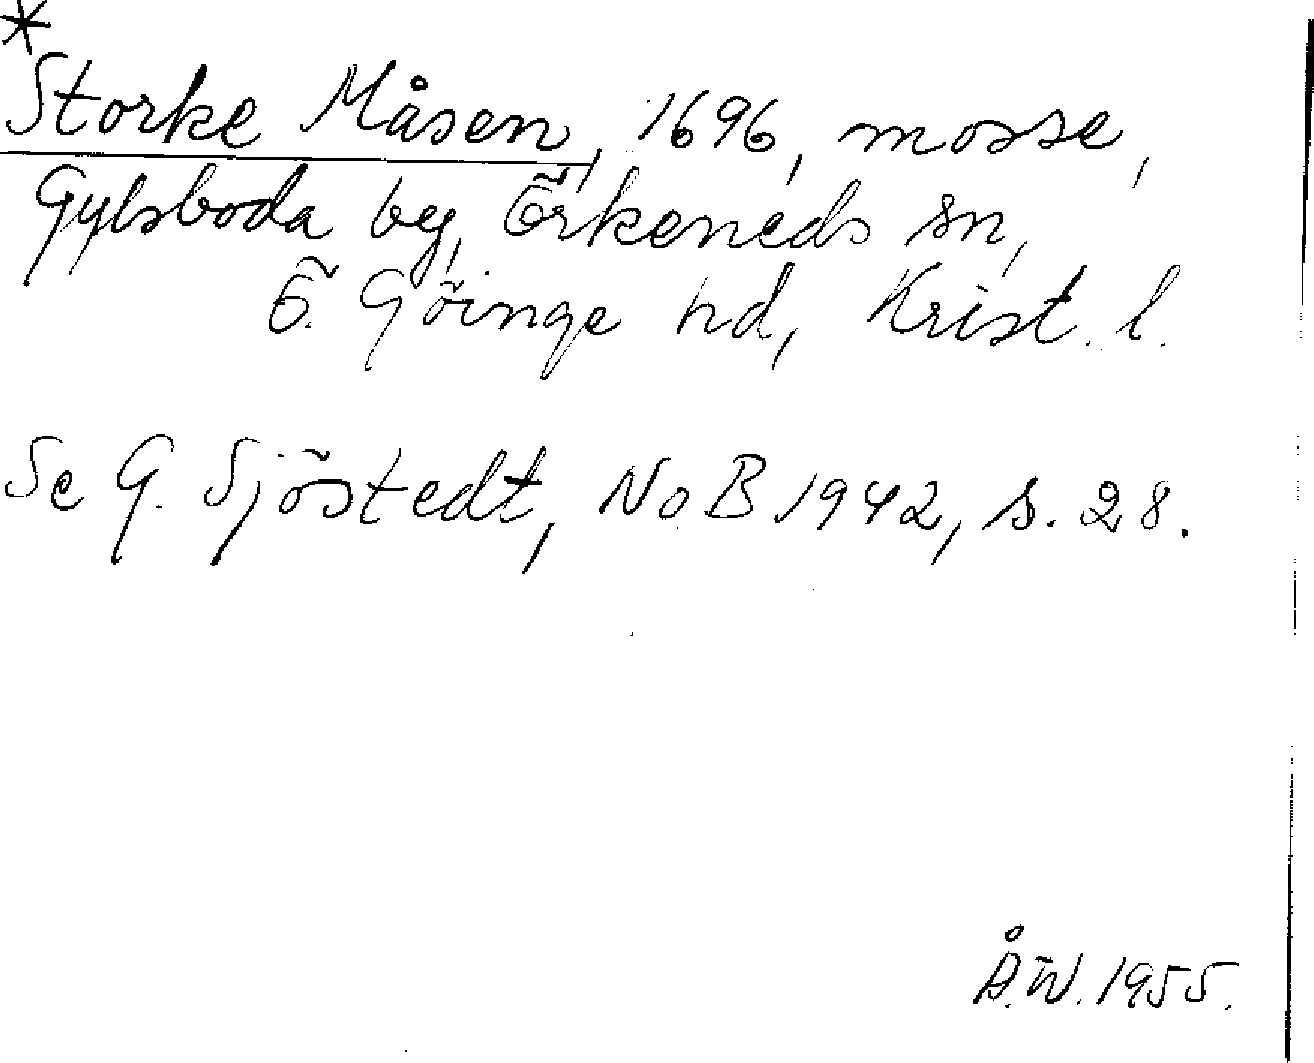 *
Storke Måsen, 1696, mosse,
Gylsboda by, Örkeneds sn,
Ö. Göinge hd, Krist. l.
Se G. Sjöstedt, NoB 1942, s. 28.
Å.W. 1955.